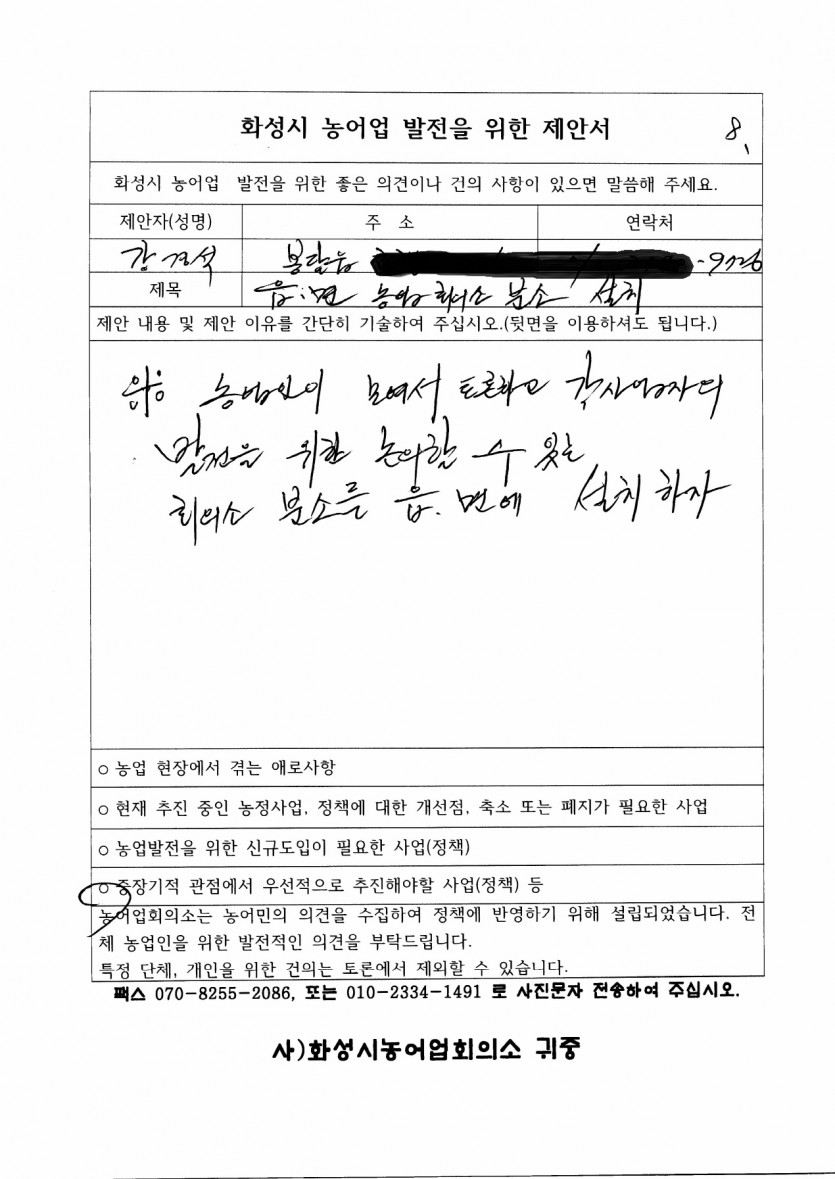 화성시 농어업 발전을 위한 제안서 8
화성시 농어업 발전을 위한 좋은 의견이나 건의 사항이 있으면 말씀해 주세요.
제안자(성명) 주 소 연락처
강경석 봉담읍 -9726
제목 읍.면 농어업회의소 분소 설치
제안 내용 및 제안 이유를 간단히 기술하여 주십시오.(뒷면을 이용하셔도 됩니다.)
농업인이 모여서 토론하고 각사업자의
발전을 위한 논의할 수 있는
회의소 분소를 읍.면에 설치하자
○ 농업 현장에서 겪는 애로사항
○ 현재 추진 중인 농정사업, 정책에 대한 개선점, 축소 또는 폐지가 필요한 사업
○ 농업발전을 위한 신규도입이 필요한 사업(정책)
○ 중장기적 관점에서 우선적으로 추진해야할 사업(정책) 등
농어업회의소는 농어민의 의견을 수집하여 정책에 반영하기 위해 설립되었습니다. 전
체 농업인을 위한 발전적인 의견을 부탁드립니다.
특정 단체, 개인을 위한 건의는 토론에서 제외할 수 있습니다.
팩스 070-8255-2086, 또는 010-2334-1491 로 사진문자 전송하여 주십시오.
사)화성시농어업회의소 귀중